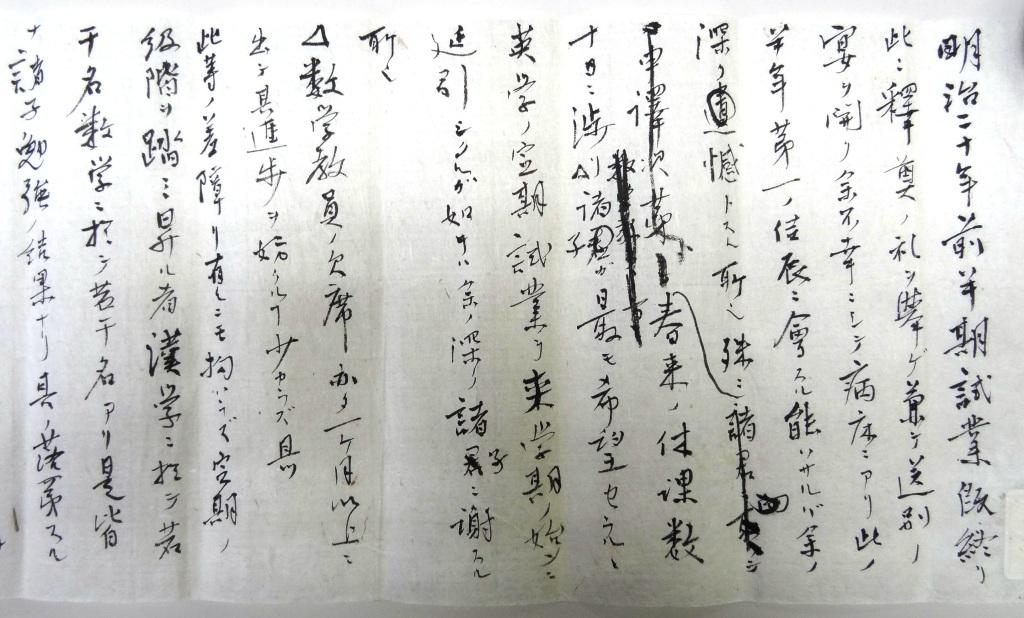 明治二十年前半期試業既終リ
此ニ釋奠ノ礼ヲ挙ゲ兼テ送別ノ
宴ヲ開ク余不幸ニシテ病床ニアリ此ノ
半年第一ノ佳辰ニ會スル能ハサルハ余ノ
深ク遺憾トスル所ナリ殊ニ諸君
春来ノ休課数
十日ニ渉リ諸子ガ最モ希望セシ
英学ノ定期試業ヲ来学期ノ始メニ
延引シタルガ如キハ余ノ深ク諸子ニ謝スル
所ナリ
数学教員ノ欠席亦タ一ケ月以上ニ
出テ其進歩ヲ妨クルコト少カラズ然レトモ
此等ノ差障リ有ルニモ拘ハラズ定期ノ
級階ヲ踏ミ昇ル者漢学ニ於テ若
干名数学ニ於テ若干名アリ是皆
ナ諸子勉強ノ結果ナリ其ノ落第スル